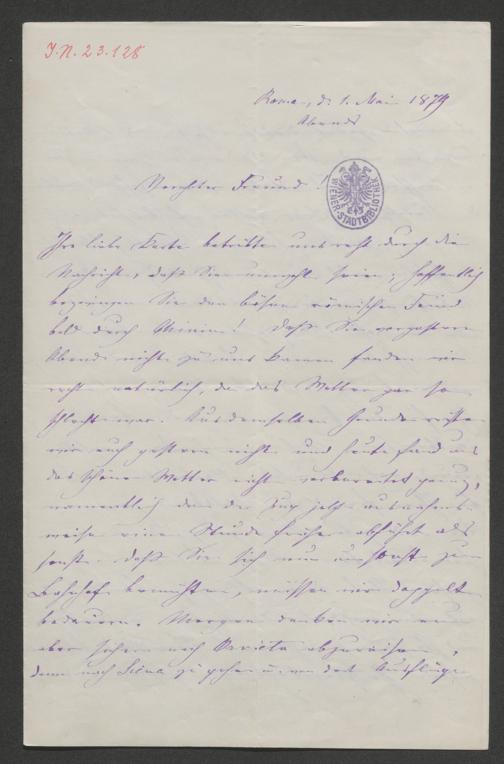 I.N. 23.128
Roma, d. 1. Mai 1879
Abends
Verehrter Freund!
WIENER STADTBIBLIOTHEK
Ihre liebe Karte betrübte uns recht durch die
Nachricht, daß Sie unwohl seien; hoffentlich
bezwingen Sie den bösen römischen Feind
bald durch Chinin! Daß Sie vorgestern
Abend nicht zu uns kamen fanden wir
recht natürlich, da das Wetter gar so
schlecht war. Aus demselben Grunde reisten
wir auch gestern nicht und heute fand uns
das schöne Wetter nicht vorbereitet genug,
namentlich da der Zug jetzt ausnahms-
weise eine Stunde früher abfährt als
sonst. Daß Sie sich nun umsonst zum
Bahnhof bemühten, müssen wir doppelt
bedauern. Morgen denken wir nun
aber sicher nach Orvieto abzureisen,
dann nach Siena zu gehen u. von dort Ausflüge